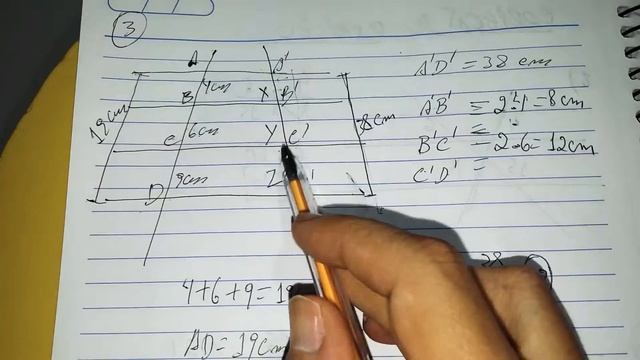 3
A A'
4cm
B X B'
19cm 38cm
C 6cm Y C'
D 9cm Z '
4+6+9=19
AD=19cm
A'D' = 38 cm
A'B' = 2·4=8cm
B'C' = 2·6=12cm
C'D' =
38